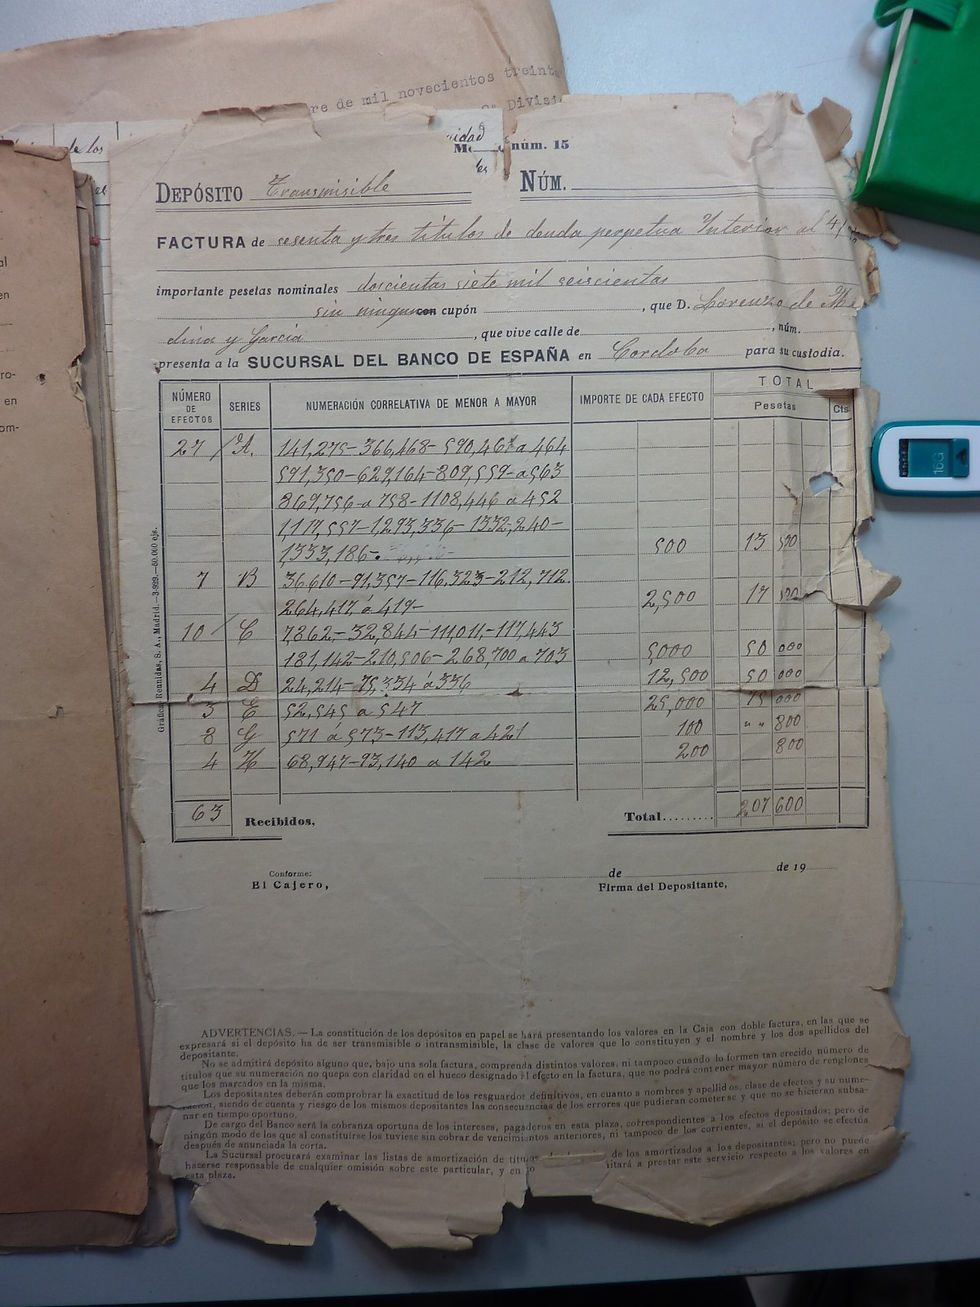 re de mil novecientos treint
Divisi
de los
nidad
núm. 15
DEPÓSITO Transmisible NÚM.
FACTURA de sesenta y tres títulos de deuda perpetua Interior al 4/
importante pesetas nominales doscientas siete mil seiscientas
sin ningun con cupón , que D. Lorenzo de Me
dina y García , que vive calle de , núm.
presenta a la SUCURSAL DEL BANCO DE ESPAÑA en Cordoba para su custodia.
NÚMERO DE EFECTOS SERIES NUMERACIÓN CORRELATIVA DE MENOR A MAYOR IMPORTE DE CADA EFECTO TOTAL
Pesetas Cts
27 A. 141,275-366,468-590,461 a 464
591,350-629,164-809,559-a 563
869,756-a 758-1108,446 a 452
1,117,557-1,293,336-1332,240-
1,333,186-. 500 13 500
7 B 36,610-91,357-116,323-212,712
264,417 á 419- 2,500 17 500
10 C 7862,-32,844-111,011-117,443
181,142-210,506-268,700 a 703 5,000 50 000
4 D 24,214-75,334 á 336 12,500 50 000
3 E 52,545 a 547 25,000 75 000
8 G 571 á 573-113,417 a 421 100 " " 800
4 H 68,947-93,140 a 142 200 800
63 Recibidos, Total......... 207 600
Gráficas Reunidas, S. A., Madrid.—3-929.—50.000 eje.
Conforme: de de 19
El Cajero, Firma del Depositante,
ADVERTENCIAS.—La constitución de los depósitos en papel se hará presentando los valores en la Caja con doble factura, en las que se
expresará si el depósito ha de ser transmisible o intransmisible, la clase de valores que lo constituyen y el nombre y los dos apellidos del
depositante.
No se admitirá depósito alguno que, bajo una sola factura, comprenda distintos valores, ni tampoco cuando lo formen tan crecido número de
títulos que su numeración no quepa con claridad en el hueco designado al efecto en la factura, que no podrá contener mayor número de renglones
que los marcados en la misma.
Los depositantes deberán comprobar la exactitud de los resguardos definitivos, en cuanto a nombres y apellidos, clase de efectos y su nume-
ración, siendo de cuenta y riesgo de los mismos depositantes las consecuencias de los errores que pudieran cometerse y que no se hicieran subsa-
nar en tiempo oportuno.
De cargo del Banco será la cobranza oportuna de los intereses, pagaderos en esta plaza, correspondientes a los efectos depositados; pero de
ningún modo de los que al constituirse los tuviese sin cobrar de vencimientos anteriores, ni tampoco de los corrientes, si el depósito se efectúa
después de anunciada la corta.
La Sucursal procurará examinar las listas de amortización de títu de los amortizados a los depositantes; pero no puede
hacerse responsable de cualquier omisión sobre este particular, y en itará a prestar este servicio respecto a los valores en
esta plaza.
al
en
ro-
en
om-
16G